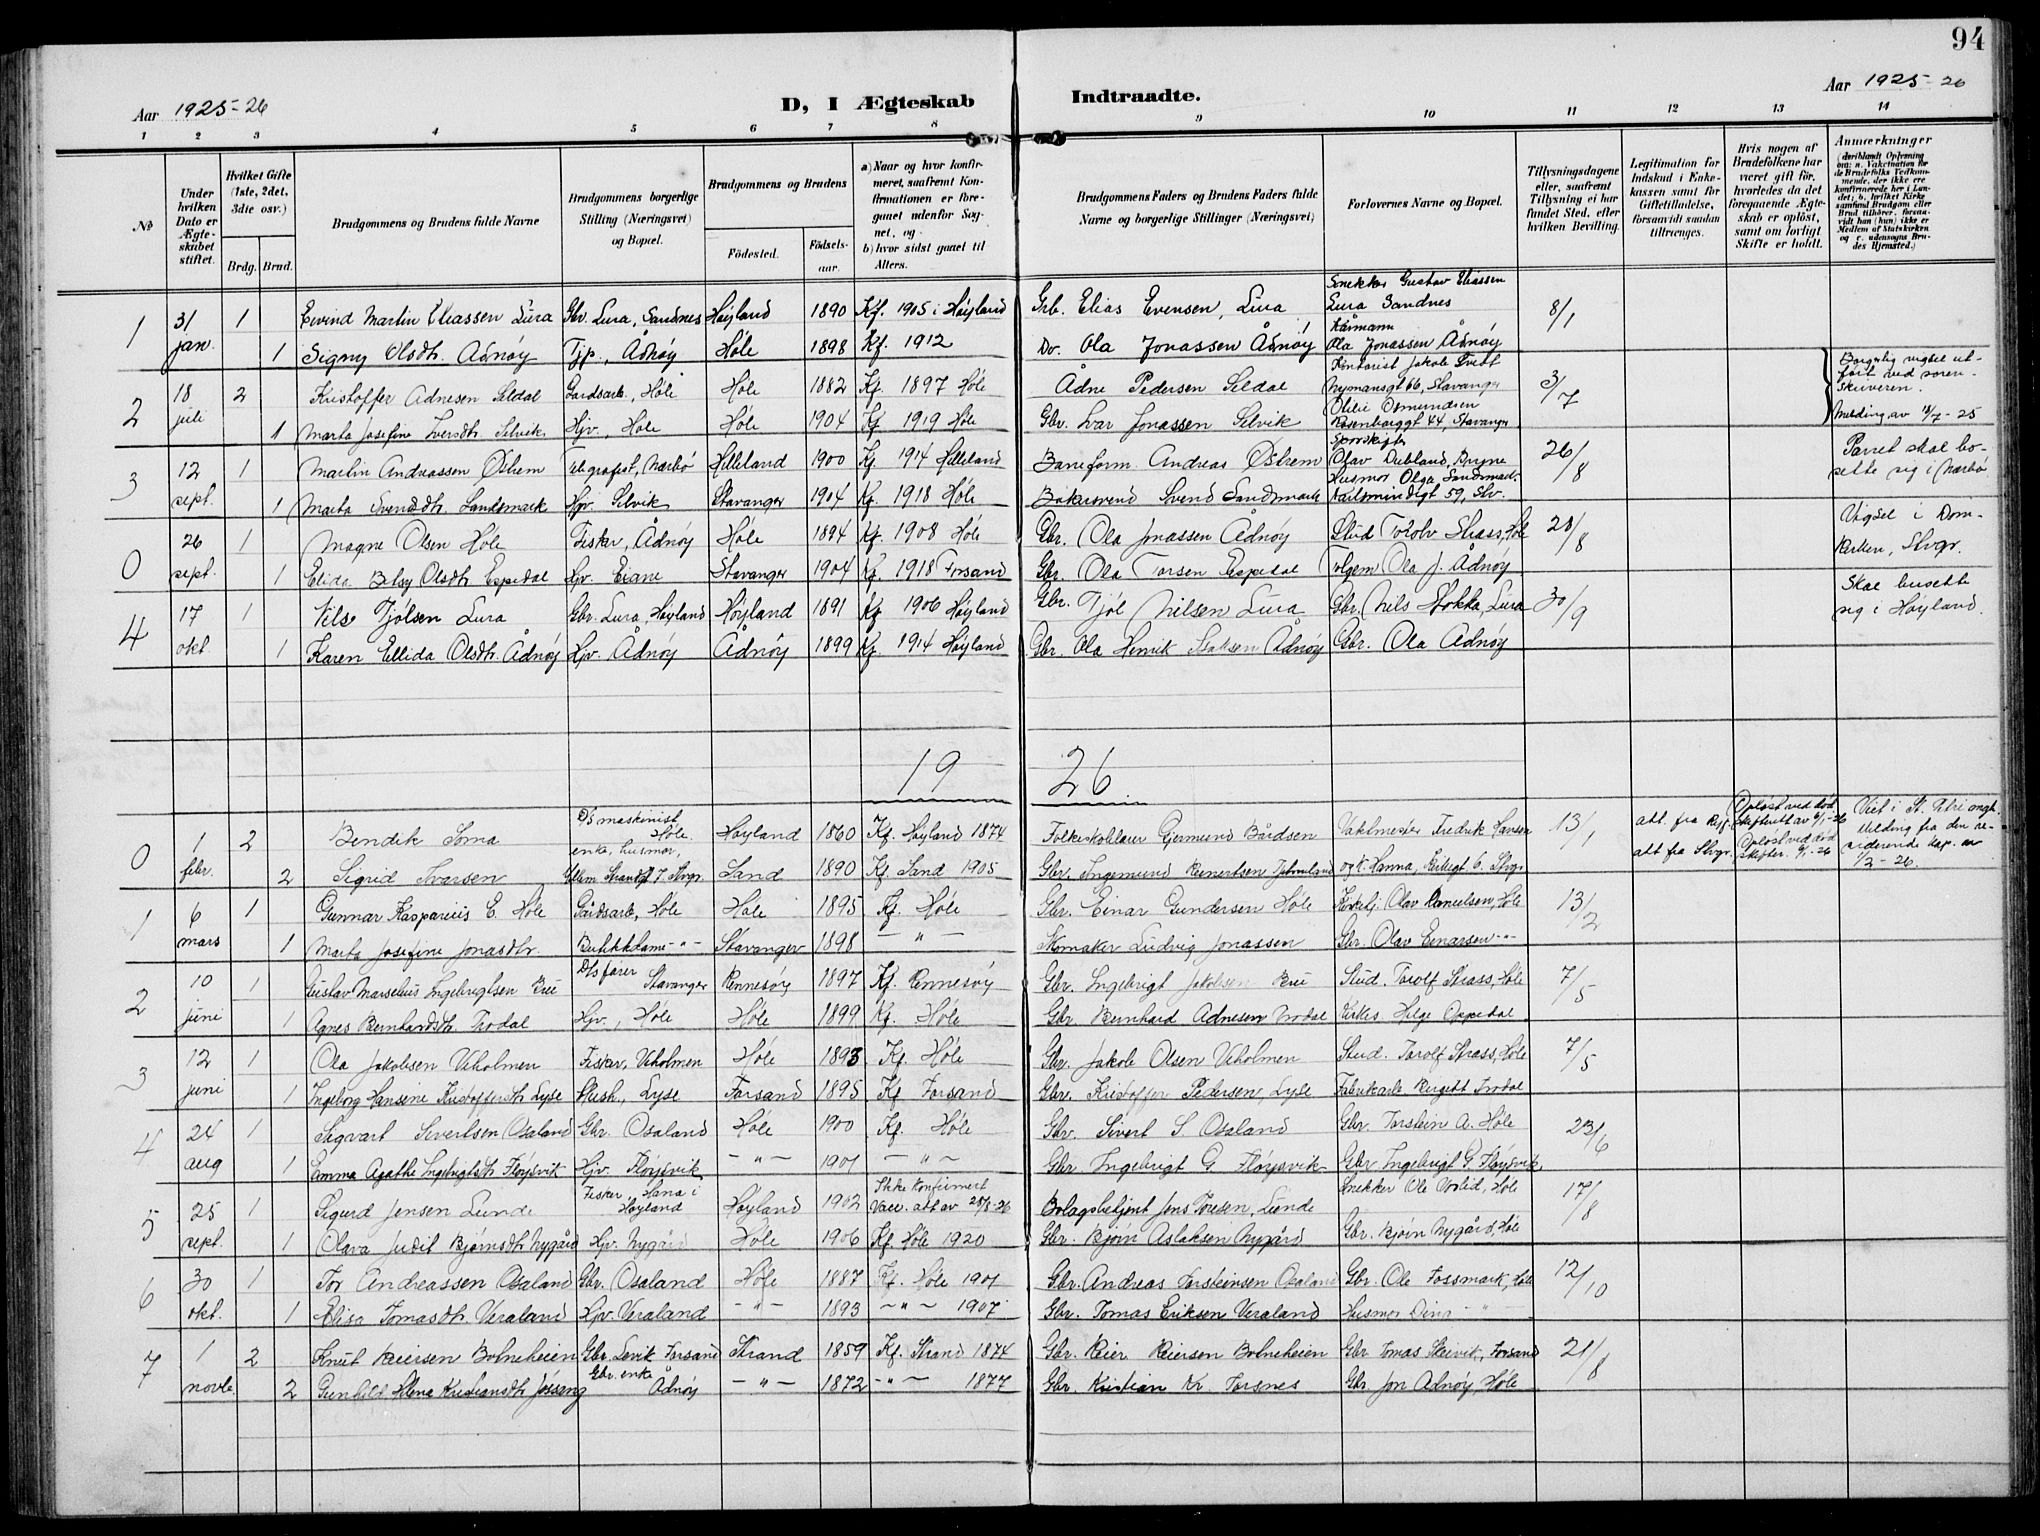 94
Aar 1925-26
D, I Ægteskab Indtraadte.
Aar 1925-26
1 2 3 4 5 6 7 8 9 10 11 12 13 14
№
Under hvilken Dato er Ægteskabet stiftet.
Hvilket Gifte (1ste, 2det, 3die osv.)
Brdg. Brud.
Brudgommens og Brudens fulde Navne
Brudgommens borgerlige Stilling (Næringsvei) og Bopæl.
Brudgommens og Brudens
Fødested. Fødselsaar.
a) Naar og hvor konfirmeret, saafremt Konfirmationen er foregaaet udenfor Sognet, og
b) hvor sidst gaaet til Alters.
Brudgommens Faders og Brudens Faders fulde Navne og borgerlige Stillinger (Næringsvei)
Forlovernes Navne og Bopæl.
Tillysningsdagene eller, saafremt Tillysning ei har fundet Sted, efter hvilken Bevilling.
Legitimation for Indskud i Enkekassen samt for Giftetilladelse, forsaavidt saadan tiltrænges.
Hvis nogen af Brudefolkene har været gift før, hvorledes da det foregaaende Ægteskab er opløst, samt om lovligt Skifte er holdt.
Anmærkninger
1 31 jan. 1 Eivind Martin Eliassen Lura Gbr. Lura, Sandnes Høyland 1890 Kf. 1905 i Høyland Grb. Elias Evensen, Lura Snekker Gustav Eliassen Lura Sandnes 8/1
1 Signy Olsdtr. Ådnøy Tjp., Ådnøy Høle 1898 Kf. 1912 Do. Ola Jonassen Ådnøy Kårmann Ola Jonassen Ådnøy
2 18 juli 2 Kristoffer Adnesen Seldal Gardsarb., Høle Høle 1882 Kf. 1897 Høle Ådne Pedersen Seldal Kontorist Jakob Tvedt Nymansgt 66, Stavanger 3/7 Borgerlig vigsel utført ved sorenskriveren.
1 Marta Josefine Iversdtr. Selvik Hjv., Høle Høle 1904 Kf. 1919 Høle Gbr. Ivar Jonassen Selvik Osmundsen Rosenborggt 44, Stavanger Melding av 18/7-25
3 12 sept. 1 Martin Andreassen Østrem Telegrafist, Nærbø Helleland 1900 Kf. 1914 Helleland Baneform. Andreas Østrem Sporskifter Olav Dubland, Bryne 26/8 Parret skal bosette sig i Nærbø
1 Marta Svendsdtr. Sandsmark Hjv. Selvik Stavanger 1904 Kf. 1918 Høle Bakersvend Svend Sandsmark Husmor Olga Sandsmark. Karlsmindegt 59, Stv.
0 26 sept. 1 Magne Olsen Høle Fisker, Ådnøy Høle 1894 Kf. 1908 Høle Gbr. Ola Jonassen Ådnøy Stud Torolv Strass, Høle 28/8 Vigsel i Domkirken, Stvgr.
1 Elida Betsy Olsdtr. Espedal Hjv. Eiane Stavanger 1904 Kf. 1918 Forsand Gbr. Ola Torsen Espedal Ola J. Ådnøy
4 17 okt. 1 Nils Tjølsen Lura Gbr. Lura, Høyland Høyland 1891 Kf. 1906 Høyland Gbr. Tjøl Nilsen Lura Gbr. Nils Stokka, Lura 30/9 Skal busette sig i Høyland.
1 Karen Ellida Olsdtr. Ådnøy Hjv. Ådnøy Ådnøy 1899 Kf. 1914 Høyland Gbr. Ola Henrik Isaksen Ådnøy Gbr. Ola Ådnøy
19 26
0 1 febr. 2 Bendik Soma D/S maskinist Høle Høyland 1860 Kf. Høyland 1874 Folkeskolelærer Gjermund Bårdsen Vaktmester Fredrik Hansen 13/1 att. fra Opløst ved død Viet i St. Petri
2 Sigrid Ivarsen enke, husmor, Stvgr. Sand 1890 Kf. Sand 1905 Gbr. Ingemund Reinertsen og k. Hanna, Stvgr att fra Stvgr. Opløst ved død 1/2-26.
1 6 mars 1 Gunnar Kasparius E. Høle Gårdsarb., Høle Høle 1895 Kf. Høle Gbr. Einar Gundersen Høle Olav Danielsen, Høle 13/2
1 Marta Josefine Jonasdtr. Butikkdame -"- Stavanger 1898 -"- Skomaker Ludvig Jonassen Gbr. Olav Einarsen -"-
2 10 juni 1 Gustav Marselius Ingebrigtsen Bru D/S fører Stavanger Rennesøy 1897 Kf. Rennesøy Gbr. Ingebrigt Jakobsen Bru Stud. Torolf Strass, Høle 7/5
1 Agnes Bernhardsdtr. Trodal Hjv., Høle Høle 1899 Kf. Høle Gbr. Bernhard Adnesen Trodal Helge Oppedal
3 12 juni 1 Ola Jakobsen Uskolmen Fisker, Uskolmen Høle 1893 Kf. Høle Gbr. Jakob Olsen Uskolmen Stud. Torolf Strass, Høle 7/5
1 Ingeborg Hansene Kristoffersdtr. Lyse Hush., Lyse Forsand 1895 Kf. Forsand Gbr. Kristoffer Pedersen, Lyse Fabrikarb. Bergett Trodal
4 24 aug 1 Sigvart Sivertsen Osaland Gbr. Osaland Høle 1900 Kf. Høle Gbr. Sivert S Osaland Gbr. Torstein A. Høle 23/6
1 Emma Agathe Ingebrigtsdtr. Fløysvik Hjv. Fløysvik -"- 1901 -"- Gbr. Ingebrigt G. Fløysvik Gbr. Ingebrigt G. Fløysvik.
5 25 sept. 1 Sigurd Jensen Lunde Fisker, Hana i Høyland Høyland 1902 Ikke konfirmert Vacc. att av 28/8-26 Bolagsbetjent Jens Toresen, Lunde Snekker Ole Voslid, Høle 17/8
1 Olava Judit Bjørnsdtr. Nygård Hjv. Nygård Høle 1906 Kf. Høle 1920 Gbr. Bjørn Aslaksen Nygård Gbr. Bjørn Nygård, Høle
6 30 okt. 1 Tor Andreassen Osaland Gbr. Osaland Høle 1887 Kf. Høle 1901 Gbr. Andreas Torsteinsen Osaland Gbr. Ole Fossmark, Høle 12/10
1 Elisa Tomasdtr. Veraland Hjv. Veraland -"- 1893 -"- 1907 Gbr. Tomas Eriksen Veraland Husmor Dina -"-
7 1 novbr. 2 Knut Reiersen Bolneheien Gbr. Levik Forsand Strand 1859 Kf. Strand 1874 Gbr. Reier Reiersen Bolneheien Gbr. Tomas Skeivik, Forsand 21/8
2 Gunhild Helena Kristiansdtr. Jøssang Gbr. enke Ådnøy -"- 1872 -"- 1877 Gbr. Kristian Kr Torsnes Gbr. Jon Adnøy, Høle